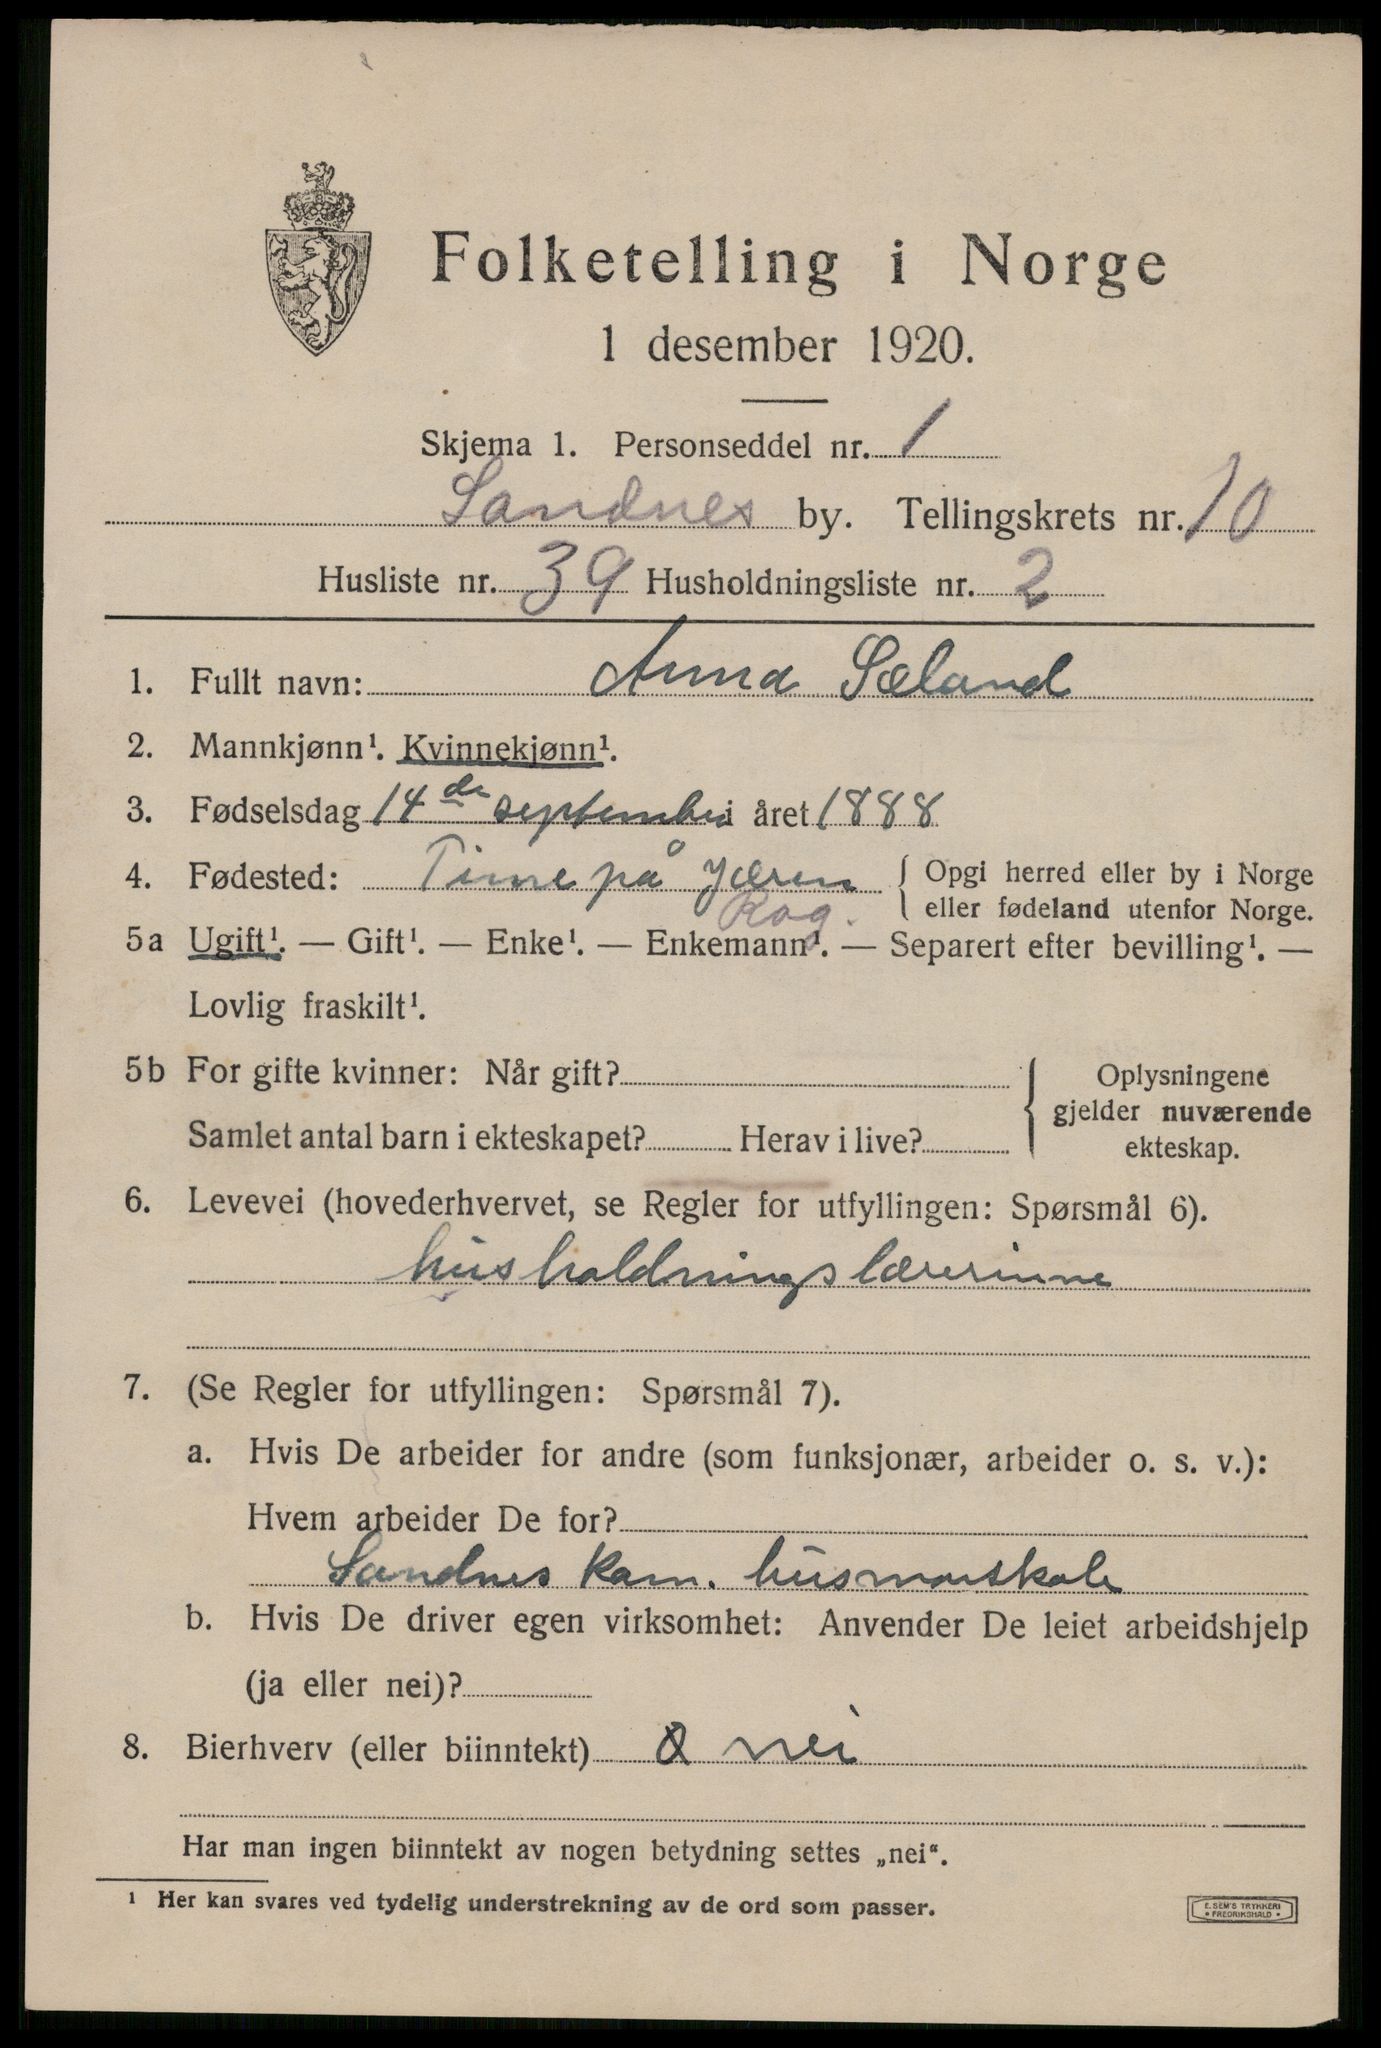 Folketelling i Norge
1 desember 1920.
Skjema 1. Personseddel nr. 1
Sandnes by. Tellingskrets nr. 10
Husliste nr. 39 Husholdningsliste nr. 2
1. Fullt navn: Anna Sæland
2. Mannkjønn¹. Kvinnekjønn¹.
3. Fødselsdag 14de september i året 1888
4. Fødested: Time på Jæren { Opgi herred eller by i Norge
Rog. eller fødeland utenfor Norge.
5a Ugift¹. — Gift¹. — Enke¹. — Enkemann¹. — Separert efter bevilling¹. —
Lovlig fraskilt¹.
5b For gifte kvinner: Når gift? { Oplysningene
gjelder nuværende
Samlet antal barn i ekteskapet? Herav i live? ekteskap.
6. Levevei (hovederhvervet, se Regler for utfyllingen: Spørsmål 6).
husholdningslærerinne
7. (Se Regler for utfyllingen: Spørsmål 7).
a. Hvis De arbeider for andre (som funksjonær, arbeider o. s. v.):
Hvem arbeider De for?
Sandnes kom. husmorskole
b. Hvis De driver egen virksomhet: Anvender De leiet arbeidshjelp
(ja eller nei)?
8. Bierhverv (eller biinntekt) nei
Har man ingen biinntekt av nogen betydning settes „nei“.
¹ Her kan svares ved tydelig understrekning av de ord som passer.
E. SEM'S TRYKKERI
• FREDRIKSHALD •